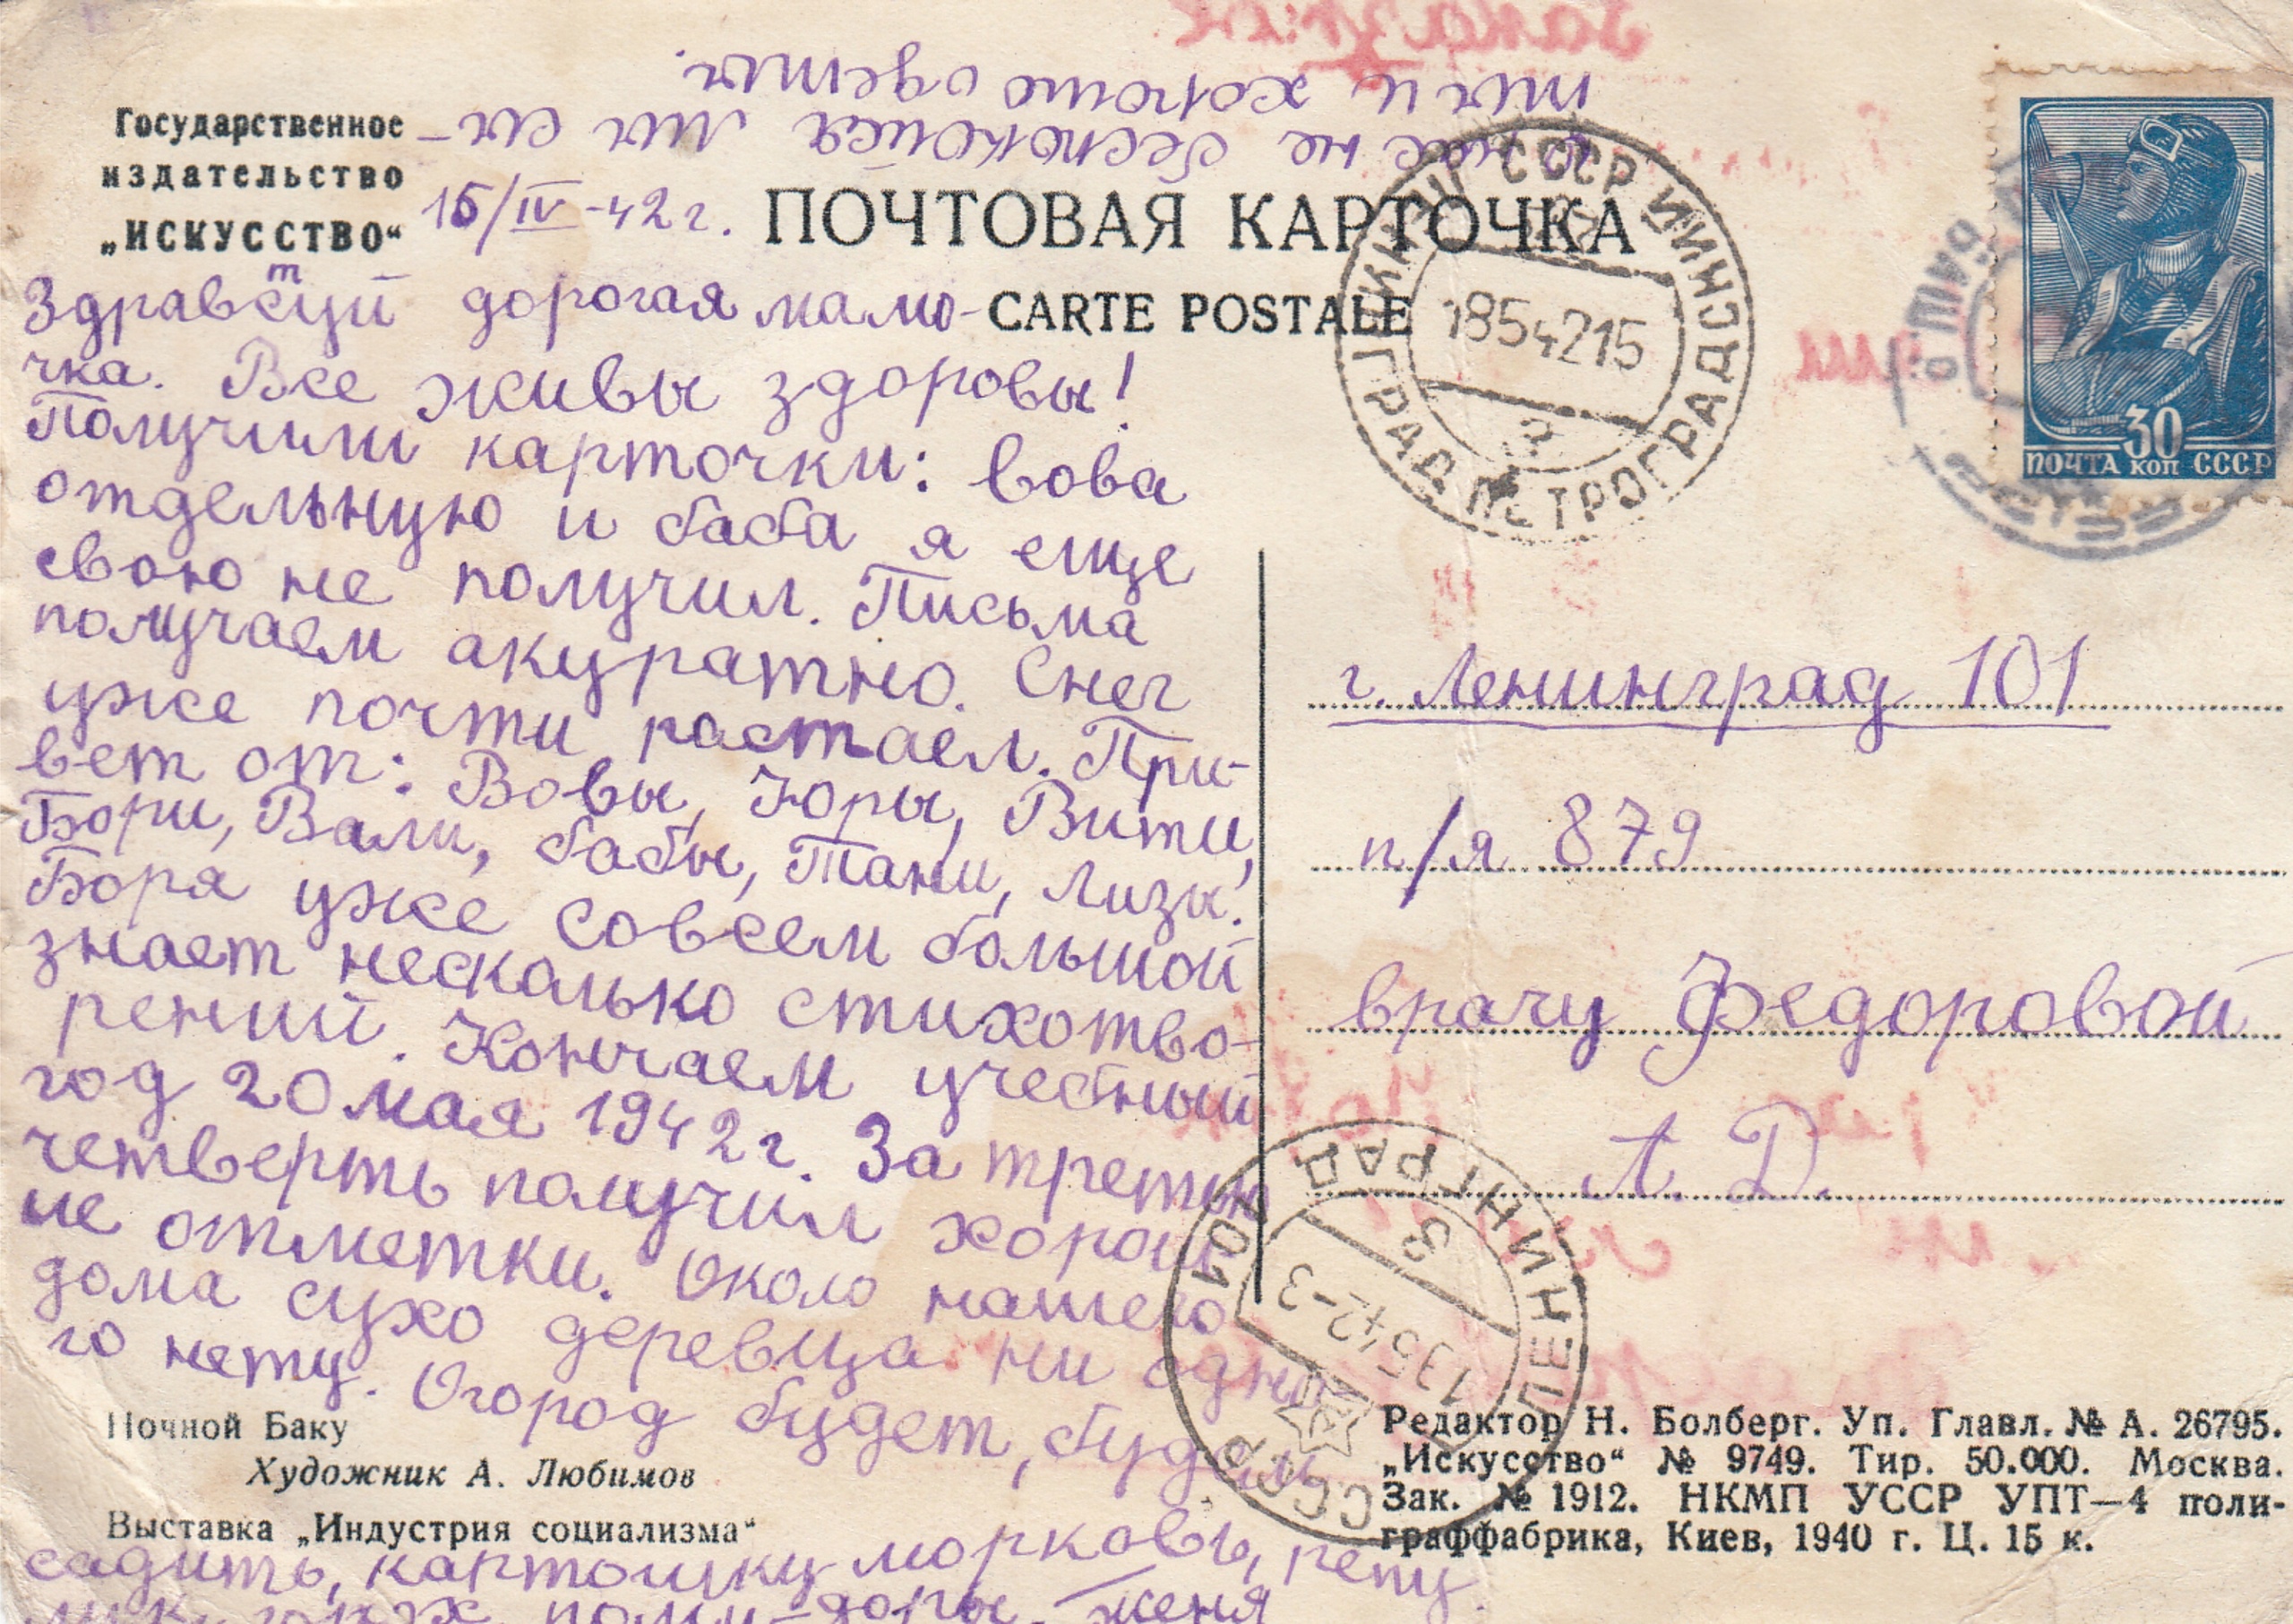 Государственное
издательство
„ИСКУССТВО“
ПОЧТОВАЯ КАРТОЧКА
CARTE POSTALE
15/IV-42 г.
Здравствуй дорогая мамо-
чка. Все живы здоровы!
Получили карточки: Вова
отдельную и баба я еще
свою не получил. Письма
получаем акуратно. Снег
уже почти растаел. При-
вет от: Вовы, Юры, Вити,
Бори, Вали, бабы, Тани, Лизы.
Боря уже совсем большой
знает несколько стихотво-
рений. Кончаем учебный
год 20 мая 1942 г. За третью
четверть получил хороши
ие отметки. Около нашего
дома сухо деревца ни одно
го нету. Огород будет, будем
садить, картошку морковь, репу
лук, горох, поми-доры. Женя
О нас не беспокойся мы сы-
ты и хорошо одеты.
заказное
ПОЧТА 30 КОП СССР
СССР ЛЕНИНГРАД ПЕТРОГРАДСКИЙ
18 5 42 15
г. Ленинград 101
п/я 879
врачу Федоровой
А. Д.
СССР ЛЕНИНГРАД 201
3
13 5 42-3
Ночной Баку
Художник А. Любимов
Выставка „Индустрия социализма“
Редактор Н. Болберг. Уп. Главл. № А. 26795.
„Искусство“ № 9749. Тир. 50.000. Москва.
Зак. № 1912. НКМП УССР УПТ—4 поли-
граффабрика, Киев, 1940 г. Ц. 15 к.